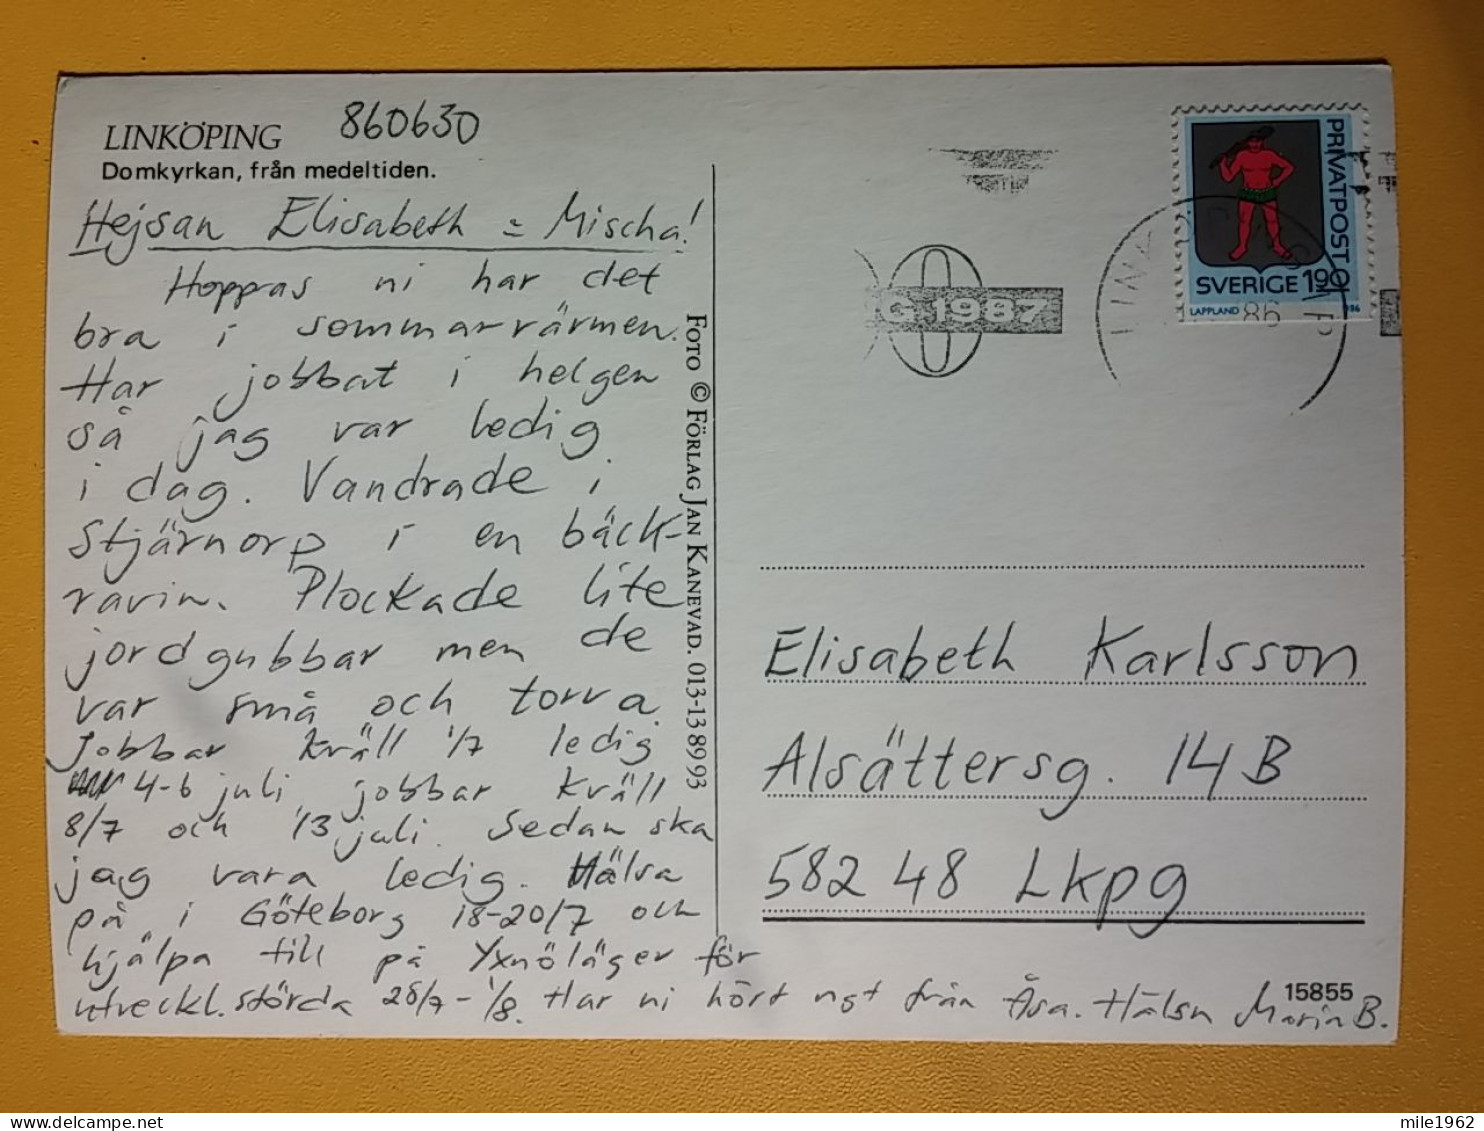 LINKÖPING 860630
Domkyrkan, från medeltiden.
Hejsan Elisabeth = Mischa!
Hoppas ni har det
bra i sommarvärmen.
Har jobbat i helgen
så jag var ledig
i dag. Vandrade i
Stjärnorp i en bäck-
ravin. Plockade lite
jordgubbar men de
var små och torra.
Jobbar kväll 1/7 ledig
4-6 juli, jobbar kväll
8/7 och 13 juli. Sedan ska
jag vara ledig. Hälsa
på i Göteborg 18-20/7 och
hjälpa till på Yxnöläger för
utveckl. störda 28/7-1/8. Har ni hört ngt från Åsa. Hälsn Maria B.
FOTO © FÖRLAG JAN KANEVAD. 013-13 89 93
PRIVATPOST
SVERIGE 1.90
LAPPLAND
G 1987
86
Elisabeth Karlsson
Alsättersg. 14 B
582 48 Lkpg
15855
mile1962